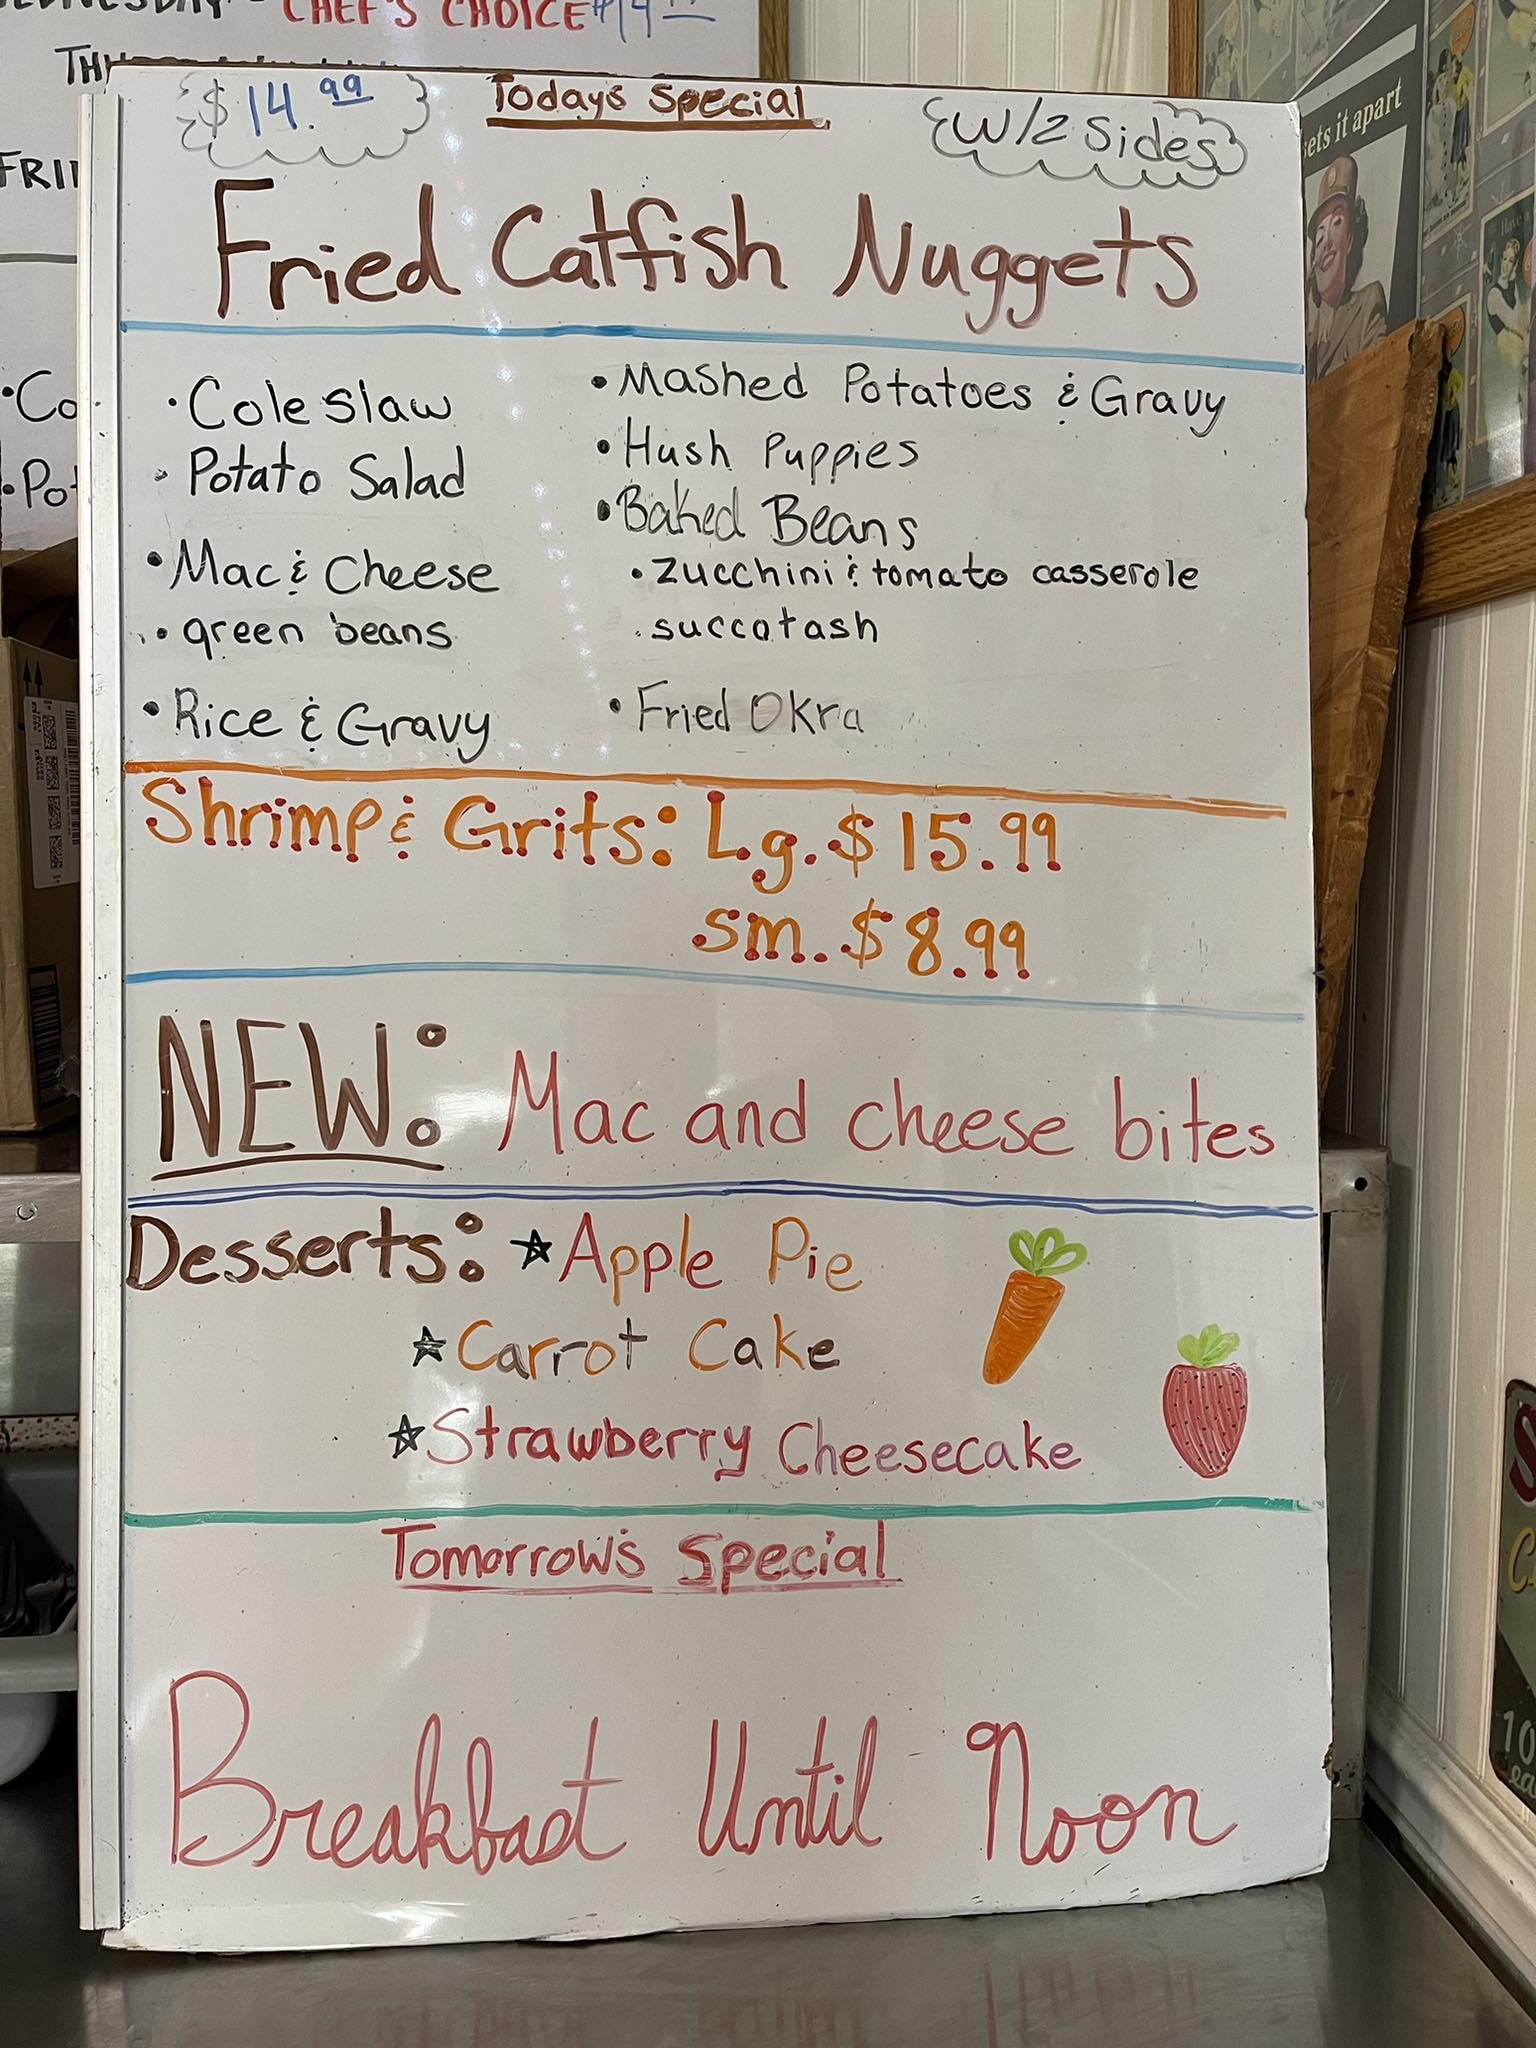 CHEF'S CHOICE $14
$14.99
Todays Special
W/2 Sides
Fried Catfish Nuggets
• Cole Slaw
• Potato Salad
• Mac & Cheese
• green beans
• Rice & Gravy
• Mashed Potatoes & Gravy
• Hush Puppies
• Baked Beans
• zucchini & tomato casserole
• succotash
• Fried Okra
Shrimp & Grits: Lg. $15.99
sm. $8.99
NEW: Mac and cheese bites
Desserts: ☆ Apple Pie
☆ Carrot Cake
☆ Strawberry Cheesecake
Tomorrow's Special
Breakfast Until Noon
sets it apart